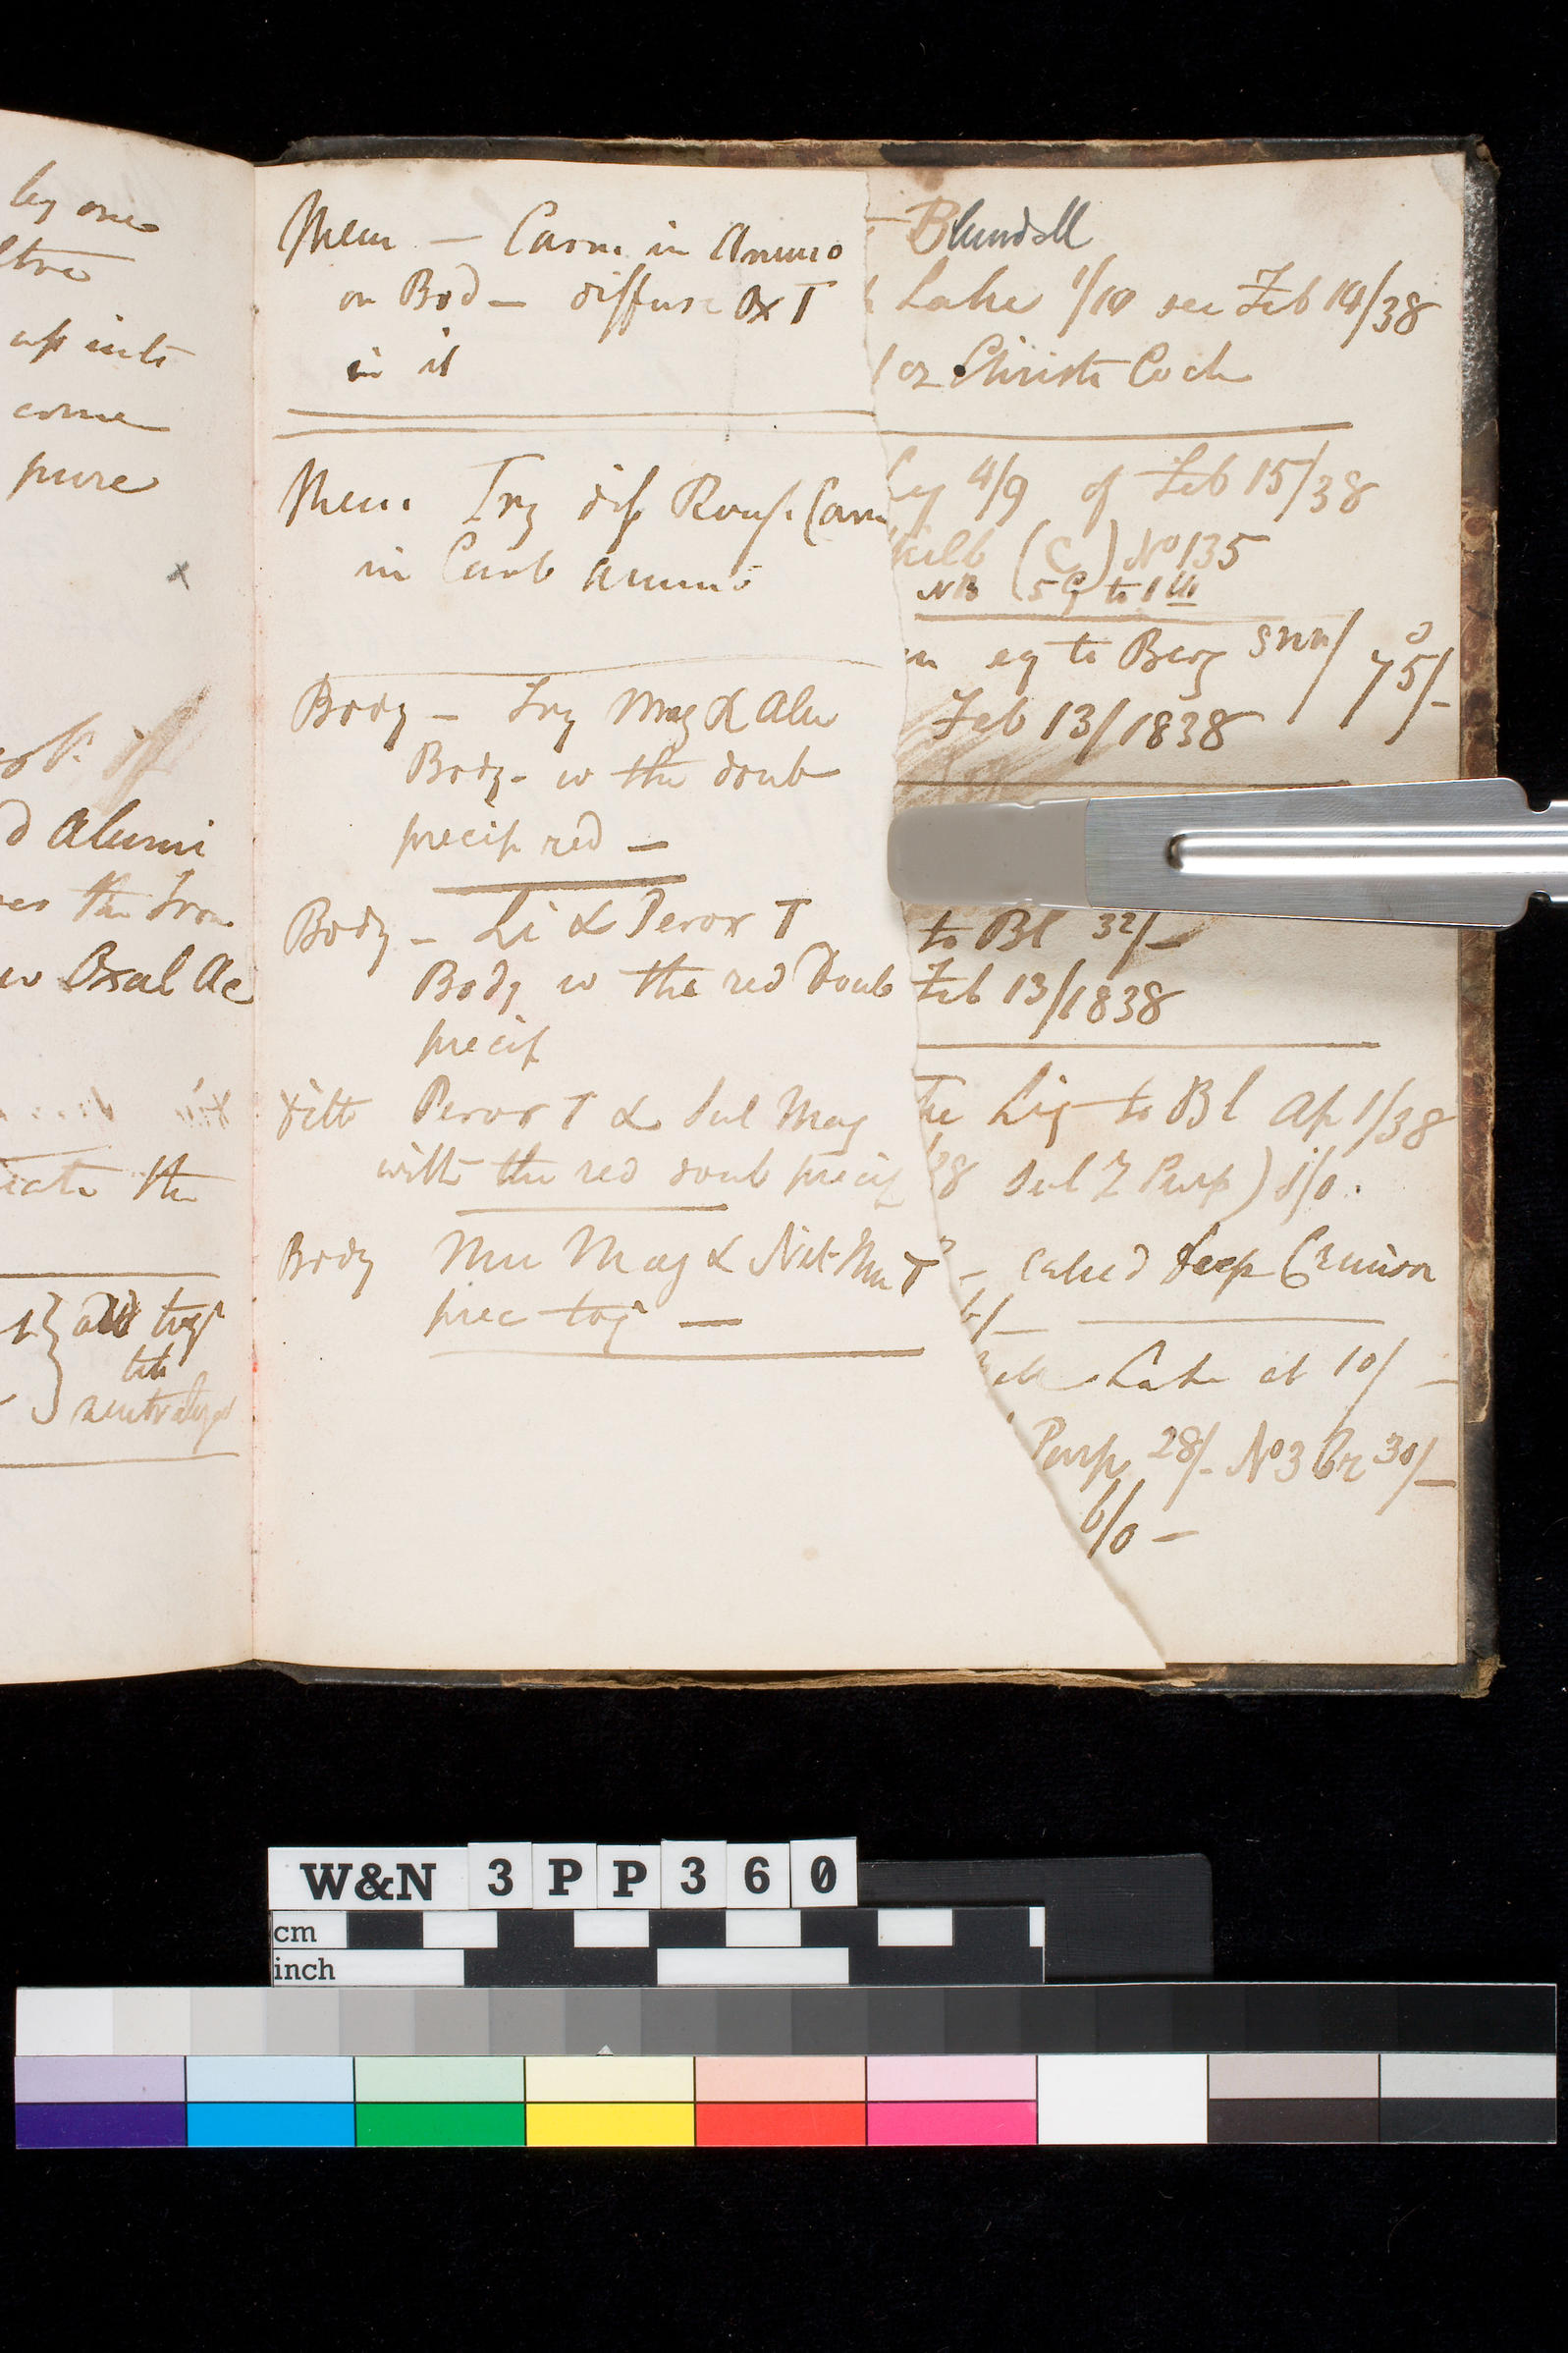 by one
up into
come
pure
x
d Alumi
the Iron
w Oxal Ac
the
add togr
till
neutralized
Mem — Carm. in Ammo
on Bod — diffuse Ox T
in it
Mem Try dif Rouf. Carm
in Carb Ammo
Body — Try Mag & Alu
Body - w the doub
precip red —
Body — Li & Perox T
Body w the red Doub
precip
ditto Perox T & Sul Mag
with the red doub precip
Body Mu Mag & Nit Mu T
prec tog —
Blundell
Lake 1/10 see Feb 14/38
oz Christi Coch
4/9 of Feb 15/38
(C) No 135
NB (5 G to 1 lb
eq to Berg 75/-
Feb 13/1838
to Bl 32/-
Feb 13/1838
Liq to Bl Ap 1/38
Sul Z Purp)
— called deep Crimson
Lake at 10/ —
Purp 28/- No 3 Cr 30/-
6/0 —
W&N 3PP360
cm
inch